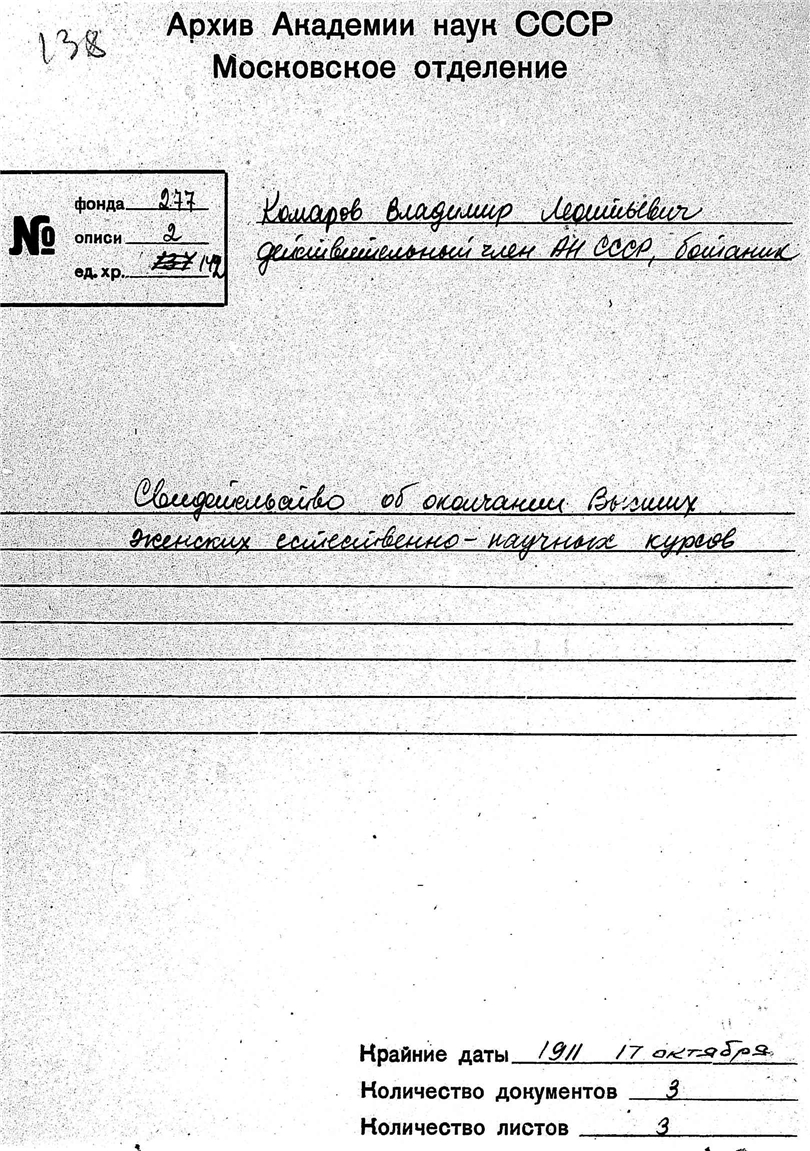 138
Архив Академии наук СССР
Московское отделение
№
фонда 277
описи 2
ед. хр. 137 142
Комаров Владимир Леонтьевич
действительный член АН СССР, ботаник
Свидетельство об окончании Высших
женских естественно-научных курсов
Крайние даты 1911 17 октября
Количество документов 3
Количество листов 3